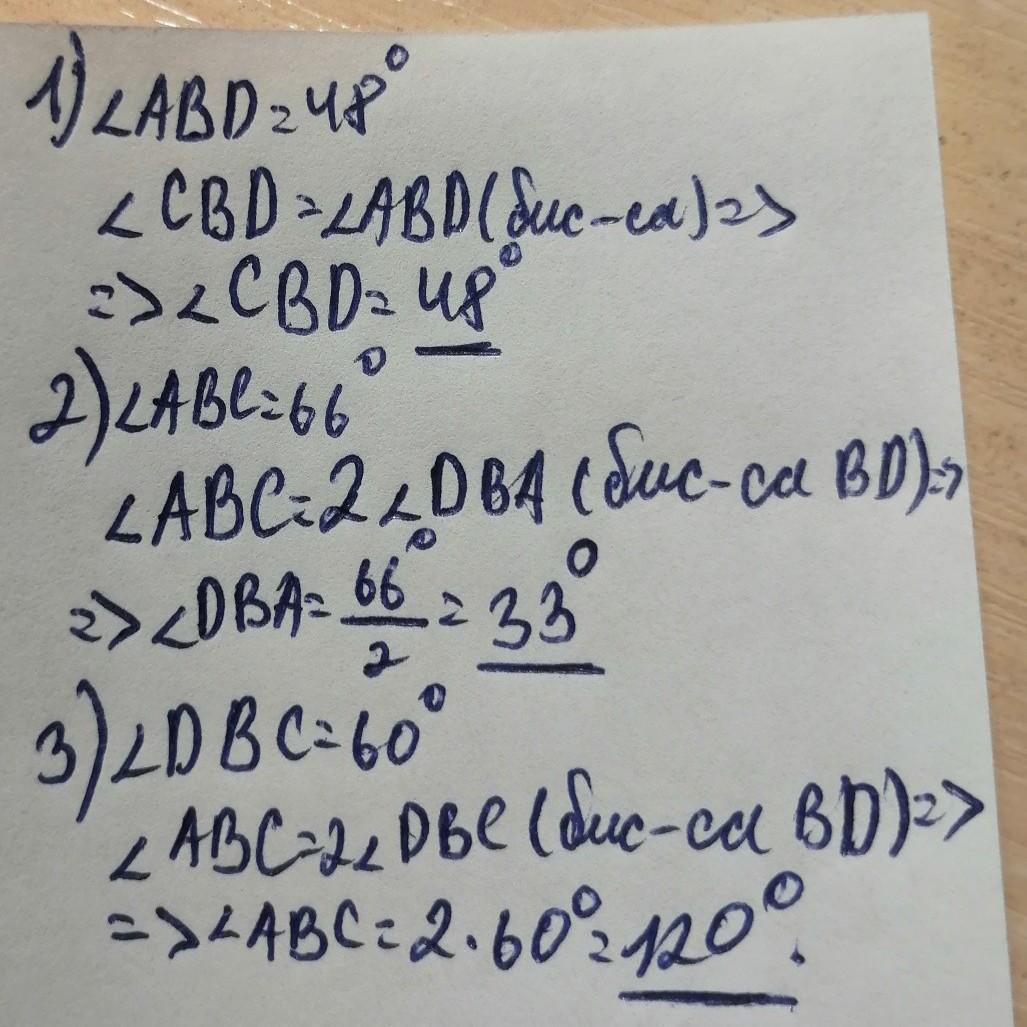 1) ∠ABD=48°
∠CBD=∠ABD(бис-са)=>
=>∠CBD=48°
2)∠ABC=66°
∠ABC=2∠DBA (бис-са BD)=>
=>∠DBA=66°/2=33°
3)∠DBC=60°
∠ABC=2∠DBC (бис-са BD)=>
=>∠ABC=2·60°=120°.